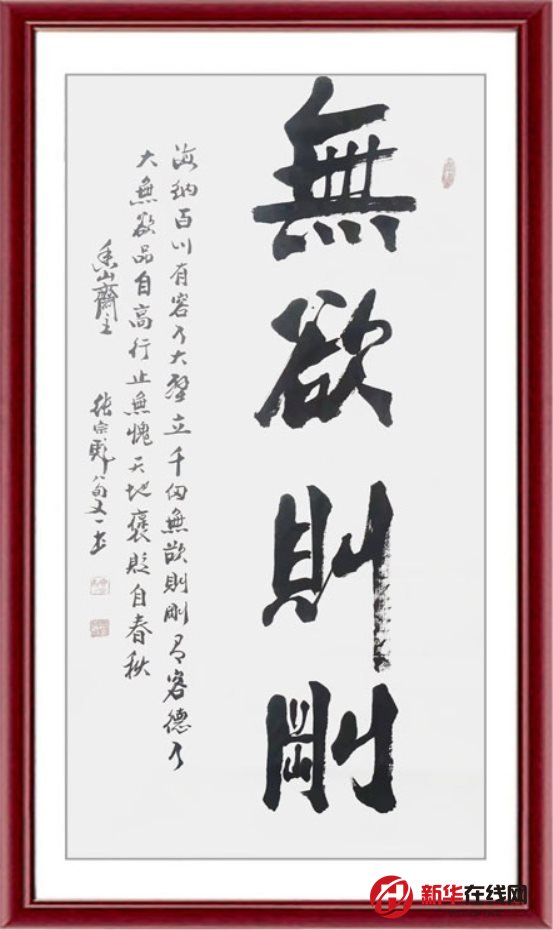 無欲則剛
海納百川有容乃大壁立千仞無欲則剛有容德乃
大無欲品自高行止無愧天地褒貶自春秋
香山齋主
張宗彪八旬又一書
新华在线网